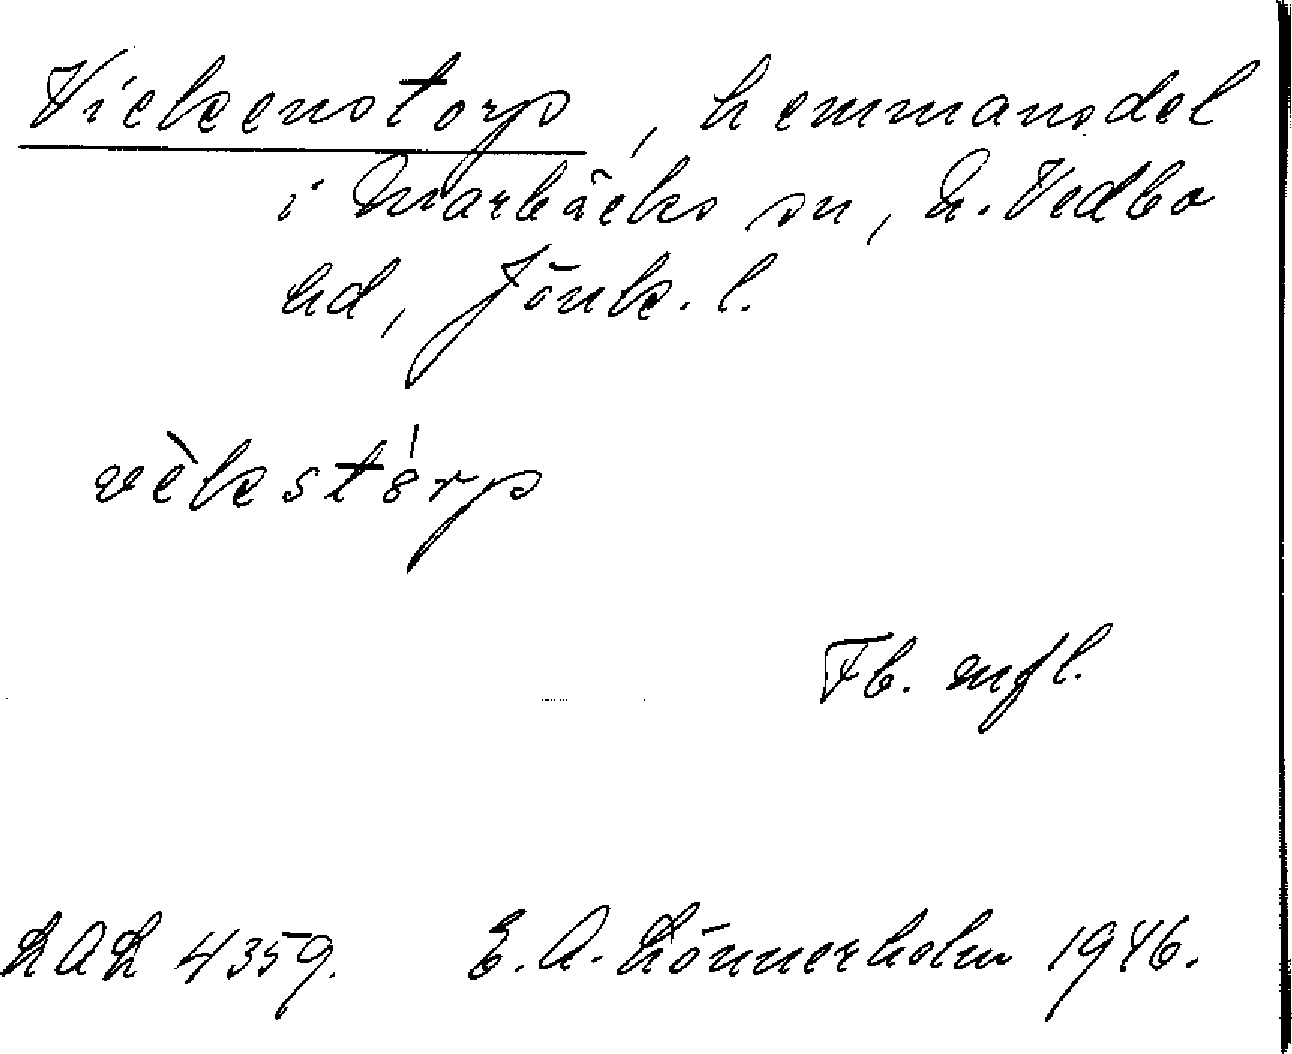 Vickenstorp, hemmansdel
i Marbäcks sn, N. Vedbo
hd, Jönk. l.
vèkstórp
Fb. mfl.
LAL 4359. E. A. Lönnerholm 1946.